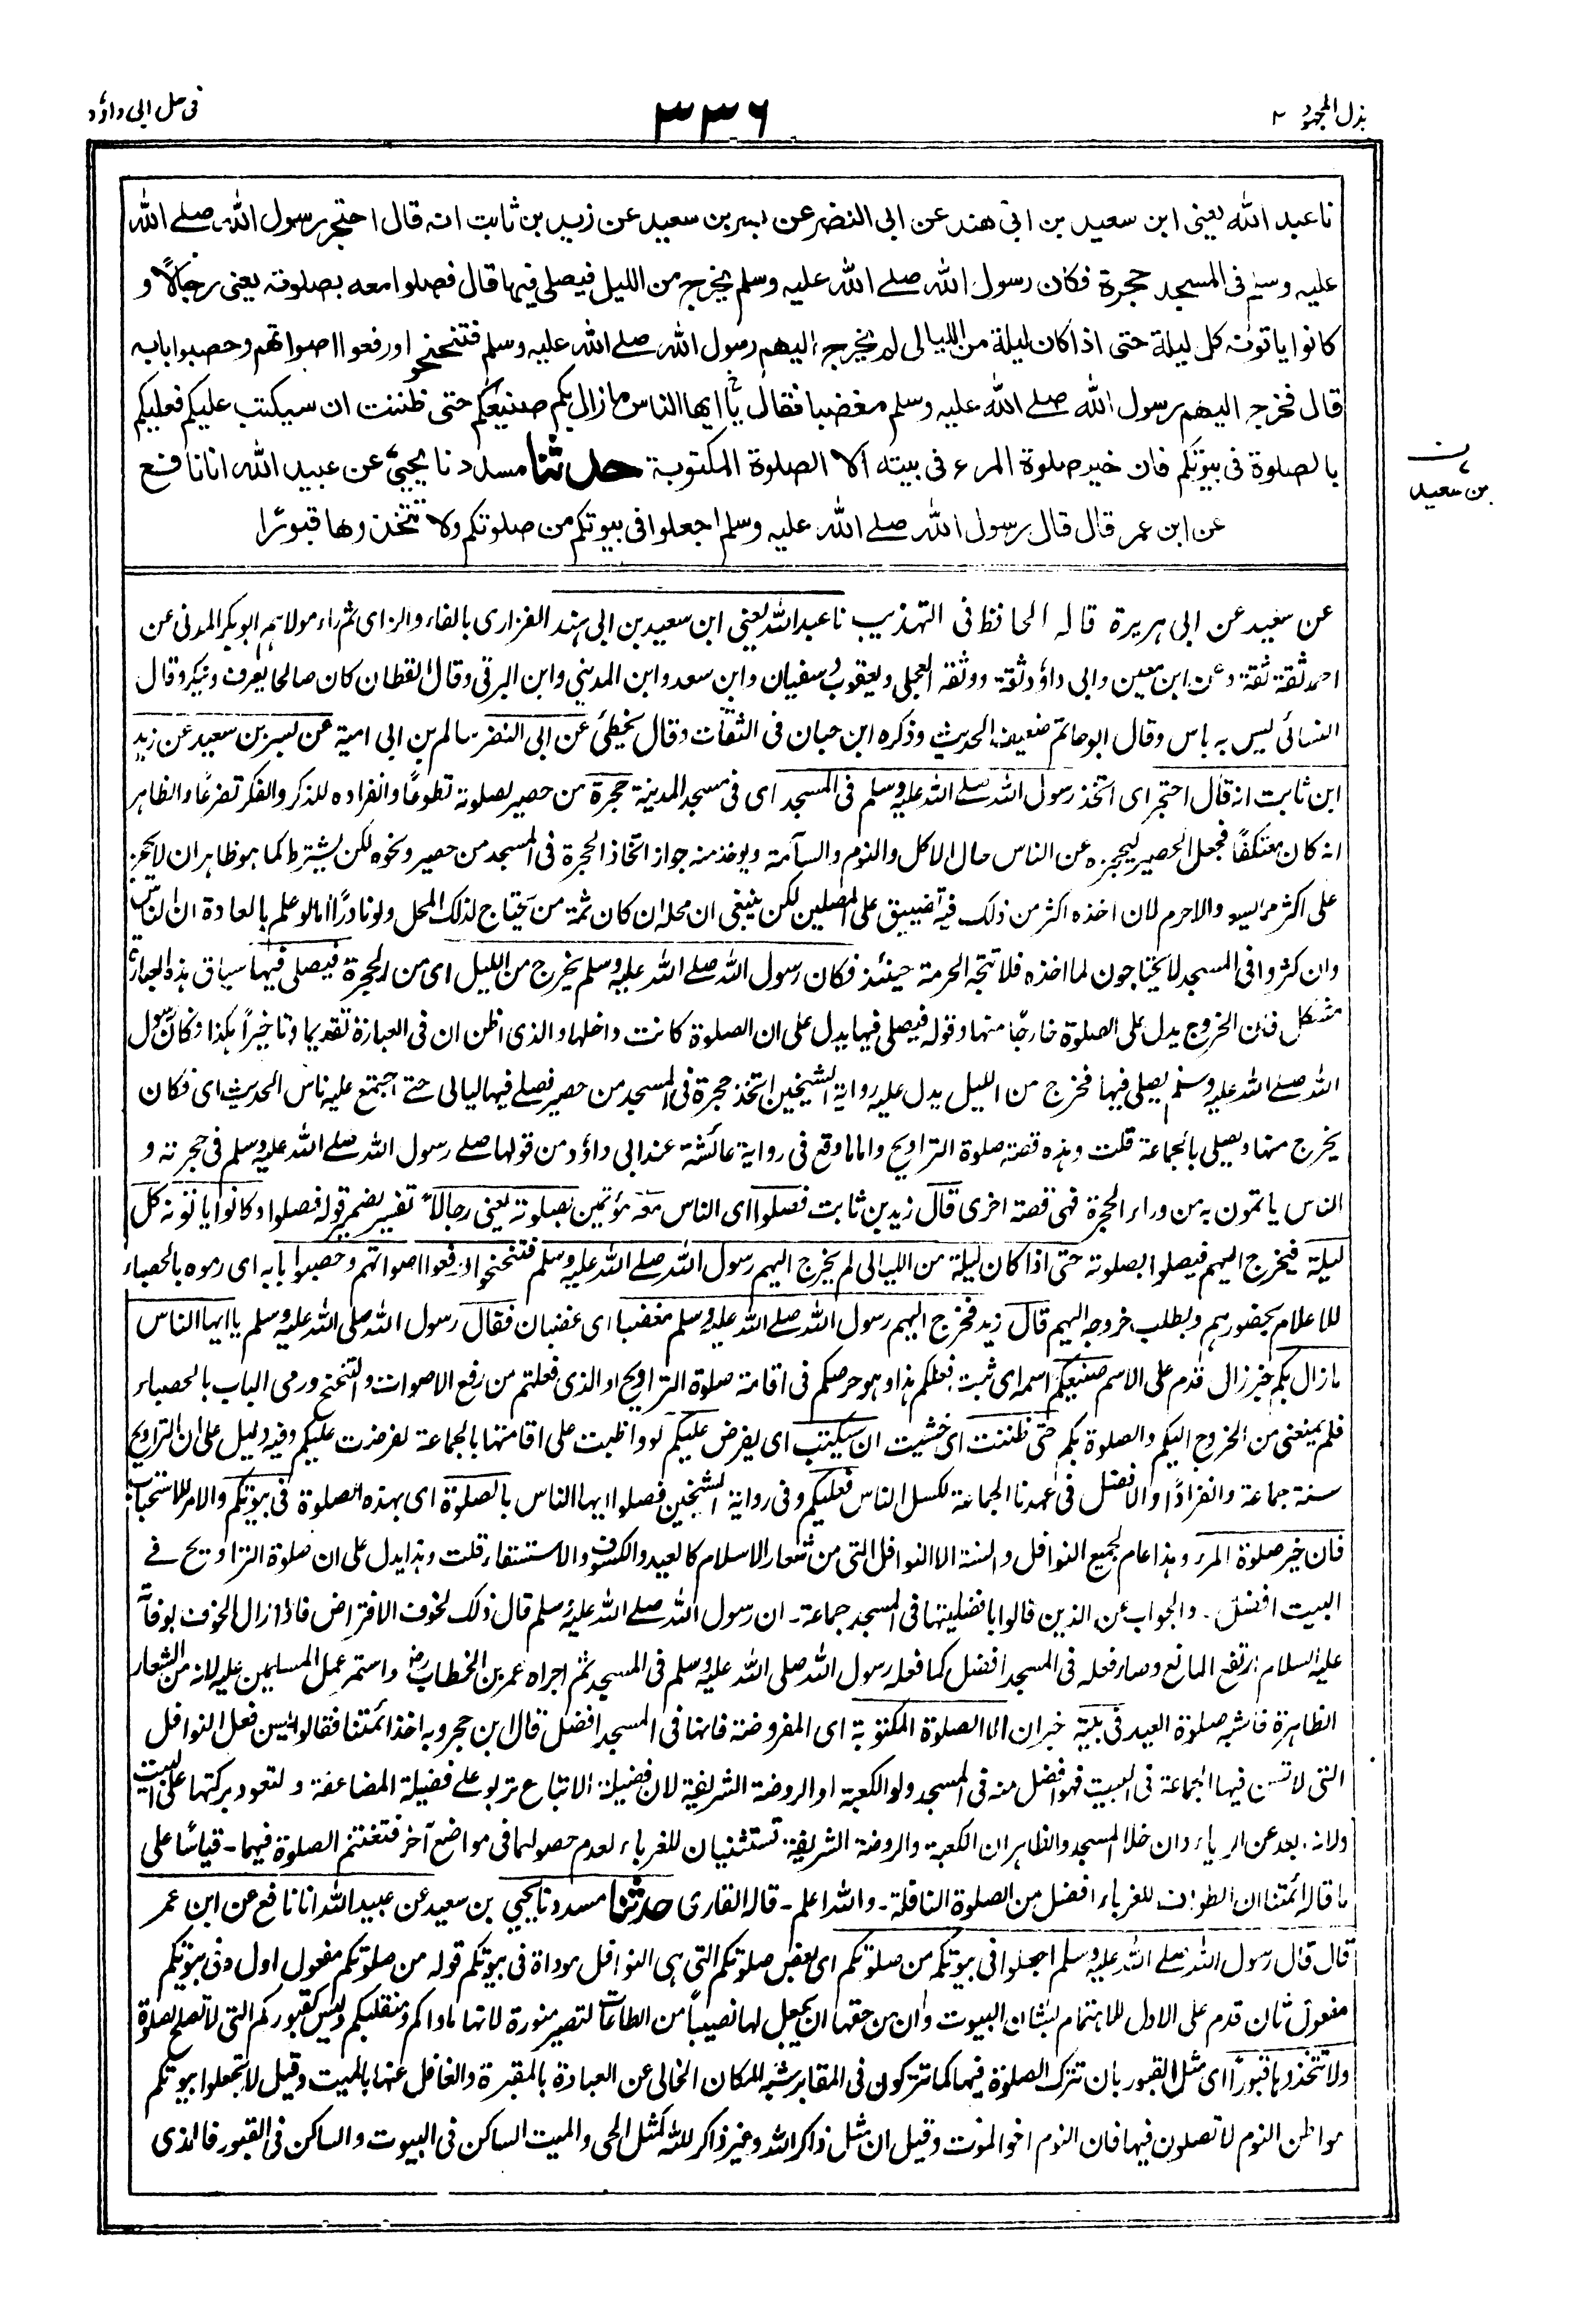 بذل المجهود ٢
٣٣٦
فى حل ابى داؤد
نا عبد الله يعنى ابن سعيد بن ابى هند عن ابى النضر عن بسر بن سعيد عن زيد بن ثابت انه قال احتجر رسول الله صلے الله
عليه وسلم فى المسجد حجرة فكان رسول الله صلے الله عليه وسلم يخرج من الليل فيصلى فيها قال فصلوا معه بصلوته يعنى رجالًا و
كانوا ياتونه كل ليلة حتى اذا كان ليلة من الليالى لم يخرج اليهم رسول الله صلے الله عليه وسلم فتنحنحوا ورفعوا اصواتهم وحصبوا بابه
قال فخرج اليهم رسول الله صلے الله عليه وسلم مغضبا فقال يا ايها الناس ما زال بكم صنيعكم حتى ظننت ان سيكتب عليكم فعليكم
بالصلوة فى بيوتكم فان خير صلوة المرء فى بيته الا الصلوة المكتوبة حدثنا مسدد نا يحيى عن عبيد الله انا نافع
ن
بن سعيد
عن ابن عمر قال قال رسول الله صلے الله عليه وسلم اجعلوا فى بيوتكم من صلوتكم ولا تتخذوها قبورًا
عن سعيد عن ابى هريرة قاله الحافظ فى التهذيب نا عبد الله يعنى ابن سعيد بن ابى هند الفزارى بالفاء والزاى ثم راء مولاهم ابو بكر المدنى عن
احمد ثقة ثقة وعن ابن معين وابى داؤد ثقة ووثقه العجلى ويعقوب بن سفيان وابن سعد وابن المدينى وابن البرقى وقال القطان كان صالحا يعرف وينكر وقال
النسائى ليس به باس وقال ابو حاتم ضعيف الحديث وذكره ابن حبان فى الثقات وقال يخطئ عن ابى النضر سالم بن ابى امية عن بسر بن سعيد عن زيد
ابن ثابت انه قال احتجر اى اتخذ رسول الله صلے الله عليه وسلم فى المسجد اى فى مسجد المدينة حجرة من حصير لصلوته تطوعًا وانفراده للذكر والفكر تضرعًا والظاهر
انه كان معتكفًا فجعل الحصير ليحجزه عن الناس حال الاكل والنوم والسآمة ويوخذ منه جواز اتخاذ الحجرة فى المسجد من حصير ونحوه لكن يشترط كما هو ظاهر ان لا يحجز
على اكثر مما يسعه والا حرم لان اخذه اكثر من ذلك فيه تضييق على المصلين لكن ينبغى ان محله ان كان ثمة من يحتاج لذلك المحل ولو نادرًا اما لو علم بالعادة ان الناس
وان كثروا فى المسجد لا يحتاجون لما اخذه فلا تتجه الحرمة حينئذ فكان رسول الله صلے الله عليه وسلم يخرج من الليل اى من الحجرة فيصلى فيها سياق هذه العبارة
مشكل فان الخروج يدل على الصلوة خارجًا منها وقوله فيصلى فيها يدل على ان الصلوة كانت داخلها والذى اظن ان فى العبارة تقديما وتاخيرًا هكذا وكان رسول
الله صلے الله عليه وسلم يصلى فيها فخرج من الليل يدل عليه رواية الشيخين اتخذ حجرة فى المسجد من حصير فصلے فيها ليالى حتے اجتمع عليه ناس الحديث اى فكان
يخرج منها ويصلى بالجماعة قلت وهذه قصة صلوة التراويح واما ما وقع فى رواية عائشة عند ابى داؤد من قولها صلے رسول الله صلے الله عليه وسلم فى حجرته و
الناس ياتمون به من وراء الحجرة فهى قصة اخرى قال زيد بن ثابت فصلوا اى الناس معه مؤتمين بصلوته يعنى رجالًا تفسير لضمير قوله فصلوا وكانوا ياتونه كل
ليلة فيخرج اليهم فيصلوا بصلوته حتى اذا كان ليلة من الليالى لم يخرج اليهم رسول الله صلے الله عليه وسلم فتنحنحوا ورفعوا اصواتهم وحصبوا بابه اى رموه بالحصباء
للاعلام بحضورهم ولطلب خروجه اليهم قال زيد فخرج اليهم رسول الله صلے الله عليه وسلم مغضبا اى غضبان فقال رسول الله صلى الله عليه وسلم يا ايها الناس
ما زال بكم خبر زال قدم على الاسم صنيعكم اسمه اى ثبت فعلكم هذا وهو حرصكم فى اقامة صلوة التراويح او الذى فعلتم من رفع الاصوات والتنحنح ورمى الباب بالحصباء
فلم يمنعنى من الخروج اليكم والصلوة بكم حتى ظننت اى خشيت ان سيكتب اى يفرض عليكم لو واظبت على اقامتها بالجماعة لفرضت عليكم وفيه دليل على ان التراويح
سنة جماعة وانفرادًا والافضل فى عهدنا الجماعة لكسل الناس فعليكم وفى رواية الشيخين فصلوا ايها الناس بالصلوة اى بهذه الصلوة فى بيوتكم والامر للاستحباب
فان خير صلوة المرء وهذا عام لجميع النوافل والسنة الا النوافل التى من شعار الاسلام كالعيد والكسوف والاستسقاء قلت وهذا يدل على ان صلوة التراويح فے
البيت افضل ۔ والجواب عن الذين قالوا بافضليتها فى المسجد جماعة ۔ ان رسول الله صلے الله عليه وسلم قال ذلك لخوف الافتراض فاذا زال الخوف بوفاته
عليه السلام ارتفع المانع وصار فعله فى المسجد افضل كما فعله رسول الله صلى الله عليه وسلم فى المسجد ثم اجراه عمر بن الخطاب رض واستمر عمل المسلمين عليه لانه من الشعار
الظاهرة فاشبه صلوة العيد فى بيته خبر ان الا الصلوة المكتوبة اى المفروضة فانها فى المسجد افضل قال ابن حجر وبه اخذ ائمتنا فقالوا يسن فعل النوافل
التى لا تسن فيها الجماعة فى البيت فهو افضل منه فى المسجد ولو الكعبة او الروضة الشريفة لان فضيلة الاتباع تربو علے فضيلة المضاعفة ولتعود بركتها على البيت
ولانه ابعد عن الرياء وان خلا المسجد والظاهر ان الكعبة والروضة الشريفة تستثنيان للغرباء لعدم حصولهما فى مواضع آخر فتغتنم الصلوة فيهما ۔ قياسًا على
ما قاله ائمتنا ان الطواف للغرباء افضل من الصلوة النافلة ۔ والله اعلم ۔ قاله القارى حدثنا مسدد نا يحيى بن سعيد عن عبيد الله انا نافع عن ابن عمر
قال قال رسول الله صلے الله عليه وسلم اجعلوا فى بيوتكم من صلوتكم اى بعض صلوتكم التى هى النوافل موداة فى بيوتكم قوله من صلوتكم مفعول اول وفى بيوتكم
مفعول ثان قدم على الاول للاهتمام بشان البيوت وان من حقها ان يجعل لها نصيبًا من الطاعات لتصير منورة لانها ماواكم ومنقلبكم وليس كقبوركم التى لا تصلح لصلوة
ولا تتخذوها قبورًا اى مثل القبور بان تترك الصلوة فيها كما تتركون فى المقابر شبه المكان الخالى عن العبادة بالمقبرة والغافل عنها بالميت وقيل لا تجعلوا بيوتكم
مواطن النوم لا تصلون فيها فان النوم اخو الموت وقيل ان مثل ذاكر الله وغير ذاكر لله كمثل الحى والميت الساكن فى البيوت والساكن فى القبور فالذى